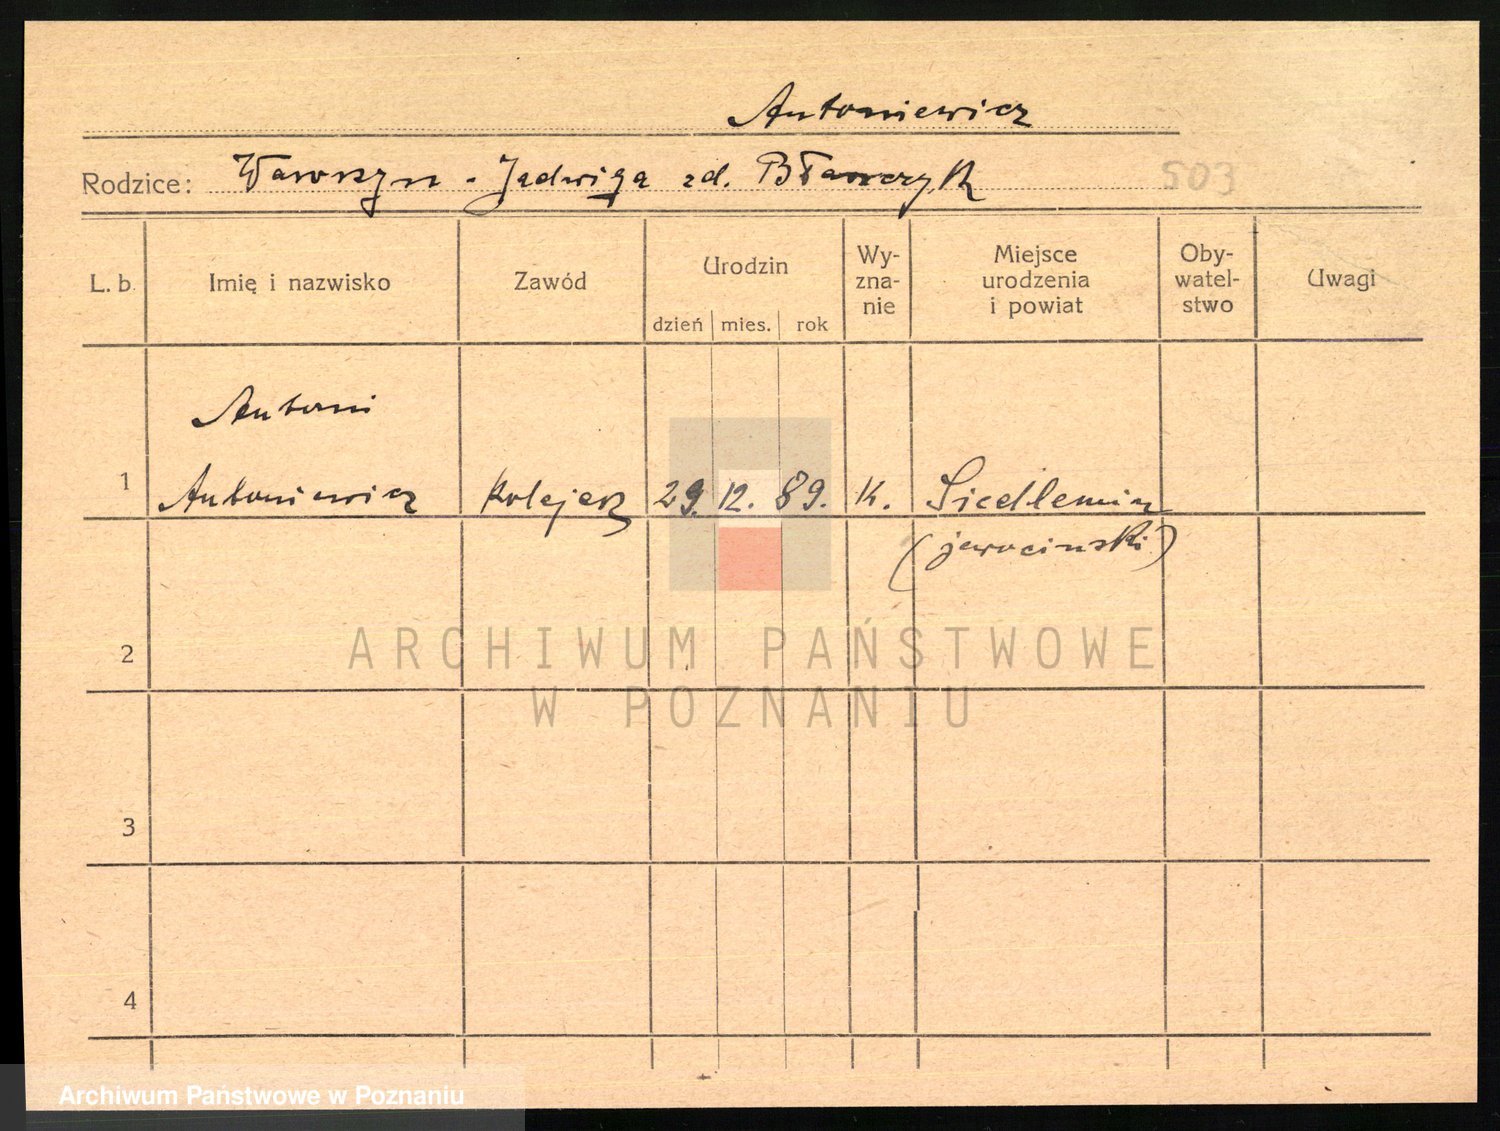 Antoniewicz
Rodzice: Wawrzyn - Jadwiga zd. Bławczyk 503
L. b. Imię i nazwisko Zawód Urodzin dzień mies. rok Wy-zna-nie Miejsce urodzenia i powiat Oby-watel-stwo Uwagi
Antoni
1 Antoniewicz kolejarz 29. 12. 89. K. Siedlemin
(jarociński)
2
3
4
ARCHIWUM PAŃSTWOWE
W POZNANIU
Archiwum Państwowe w Poznaniu